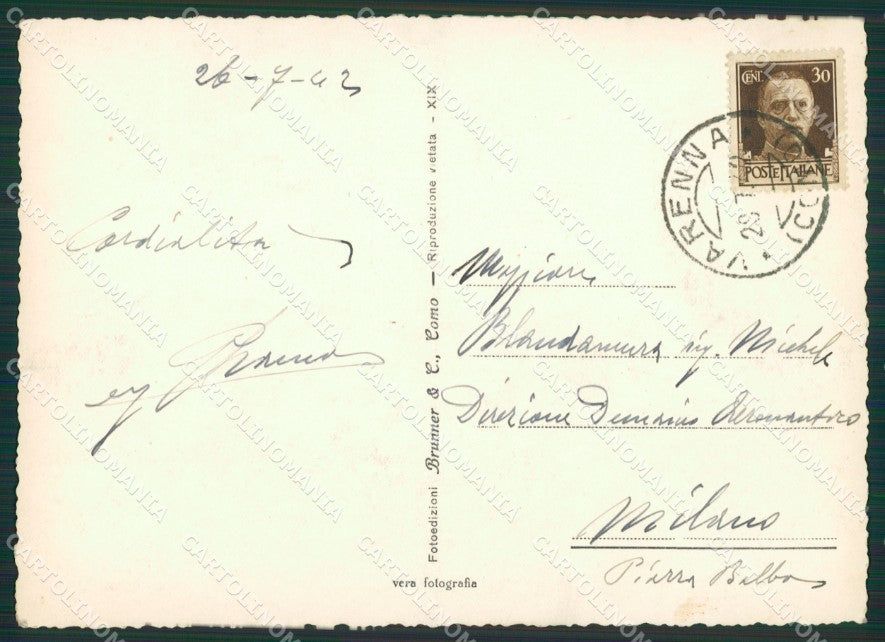 26-7-42
Cordialità
Fotoedizioni Brunner & C., Como — Riproduzione vietata - XIX
vera fotografia
CENT. 30
POSTE ITALIANE
VARENNA (COMO)
Maggiore
Blandamura ing. Michele
Direzione Demanio Aeronautico
Milano
Piazza Balbo
CARTOLINOMANIA